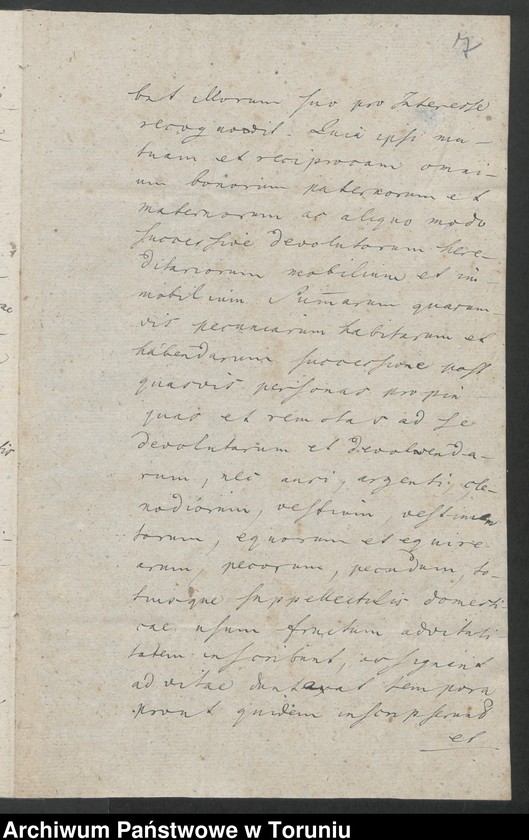 7
bet illorum suo pro Interesse
recognovit. Quia ipsi mu-
tuam et reciprocam omni-
um bonorum paternorum et
maternorum ac aliquo modo
successive devolutorum here-
ditariorum mobilium et im-
mobilium. Sumarum quarum-
vis pecuniarum habitarum et
habendarum successione post
quasvis personas propin
quas et remotas ad se
devolutarum et devolvenda-
rum, nec auri, argenti, cle-
nodiorum, vestium, vestimen
torum, equorum et equire
arum, pecorum, pecudum, to-
tiusque suppellectilis domesti
cae usum fructum advitali
tatem inscribunt, assignant
ad vitae duntaxat tempora
prout quidem inscripserunt
et
Archiwum Państwowe w Toruniu